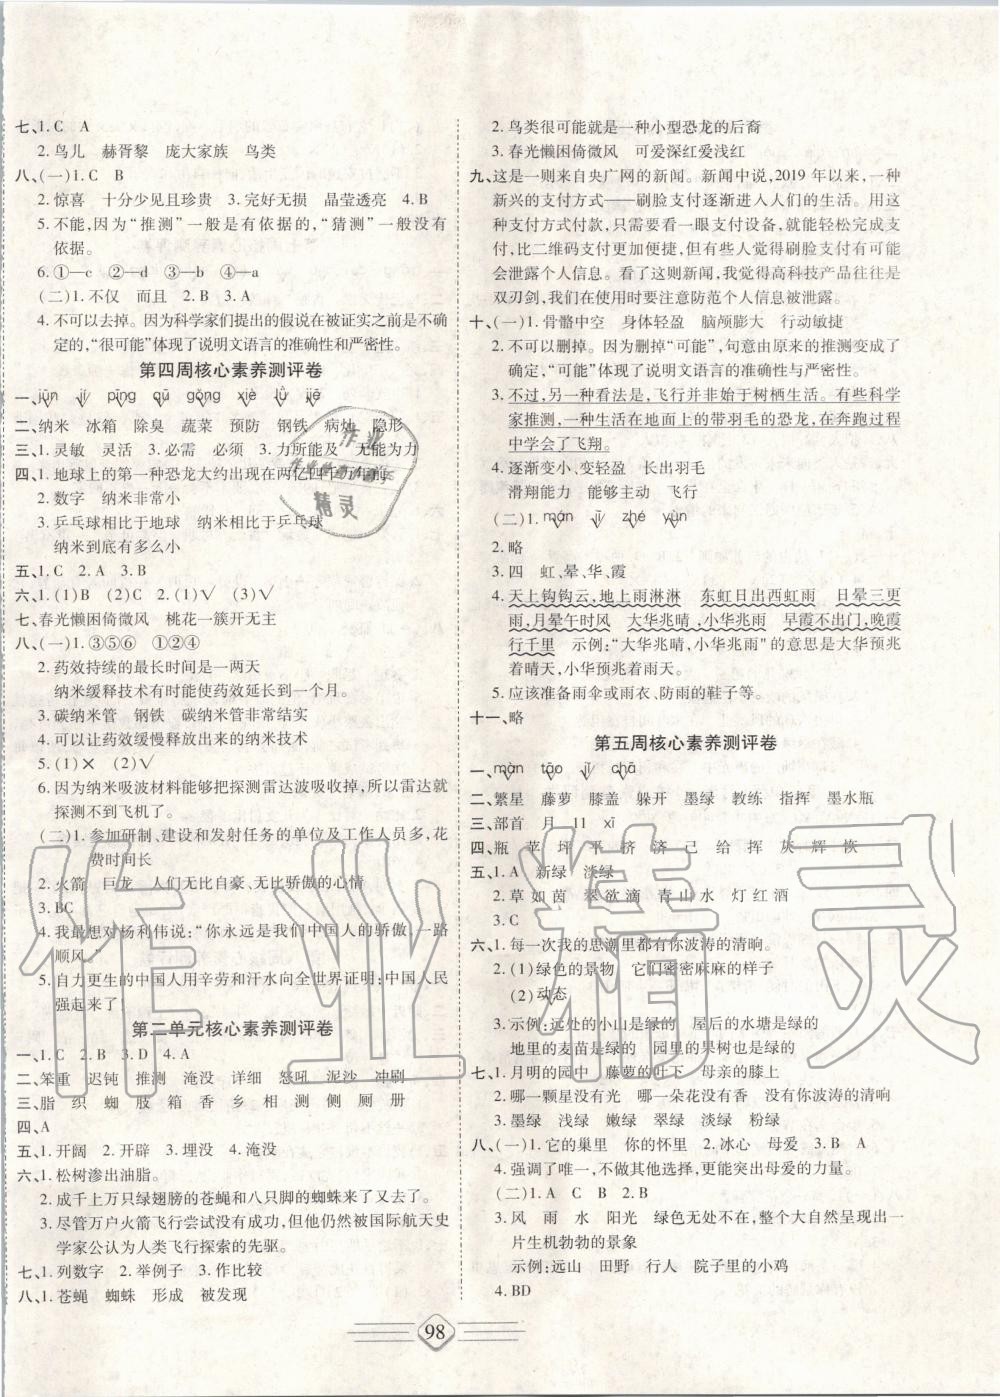 七、1. C　A
2. 鸟儿　赫胥黎　庞大家族　鸟类
八、(一)1. C　B
2. 惊喜　十分少见且珍贵　3. 完好无损　晶莹透亮　4. B
5. 不能,因为“推测”一般是有依据的,“猜测”一般没有
依据。
6. ①—c　②—d　③—b　④—a
(二)1. 不仅　而且　2. B　3. A
4. 不可以去掉。因为科学家们提出的假说在被证实之前是不确
定的,“很可能”体现了说明文语言的准确性和严密性。
第四周核心素养测评卷
一、jūn　jí　pīng　qū　gǒng　xiè　lǜ　jiē
二、纳米　冰箱　除臭　蔬菜　预防　钢铁　病灶　隐形
三、1. 灵敏　灵活　2. 必需　必须　3. 力所能及　无能为力
四、1. 地球上的第一种恐龙大约出现在两亿四千万年前
2. 数字　纳米非常小
3. 乒乓球相比于地球　纳米相比于乒乓球
纳米到底有多么小
五、1. C　2. A　3. B
六、1. (1)B　(2)C　2. (1)√　(3)√
七、春光懒困倚微风　桃花一簇开无主
八、(一)1. ③⑤⑥　①②④
2. 药效持续的最长时间是一两天
纳米缓释技术有时能使药效延长到一个月。
3. 碳纳米管　钢铁　碳纳米管非常结实
4. 可以让药效缓慢释放出来的纳米技术
5. (1)×　(2)√
6. 因为纳米吸波材料能够把探测雷达波吸收掉,所以雷达就
探测不到飞机了。
(二)1. 参加研制、建设和发射任务的单位及工作人员多,花
费时间长
2. 火箭　巨龙　人们无比自豪、无比骄傲的心情
3. BC
4. 我最想对杨利伟说:“你永远是我们中国人的骄傲,一路
顺风。”
5. 自力更生的中国人用辛劳和汗水向全世界证明:中国人民
强起来了!
第二单元核心素养测评卷
一、1. C　2. B　3. D　4. A
二、笨重　迟钝　推测　淹没　详细　怒吼　泥沙　冲刷
三、脂　织　蜘　肢　箱　香　乡　相　测　侧　厕　册
四、A
五、1. 开阔　2. 开辟　3. 埋没　4. 淹没
六、1. 松树渗出油脂。
2. 成千上万只绿翅膀的苍蝇和八只脚的蜘蛛来了。
3. 尽管万户火箭飞行尝试没有成功,但他仍然被国际航天史
学家公认为人类飞行探索的先驱。
七、1. 列数字　2. 举例子　3. 作比较
八、1. 苍蝇　蜘蛛　形成　被发现
2. 鸟类很可能就是一种小型恐龙的后裔
3. 春光懒困倚微风　可爱深红爱浅红
九、这是一则来自央广网的新闻。新闻中说,2019 年以来,一种
新兴的支付方式——刷脸支付逐渐进入人们的生活。用这
种支付方式付款,只需要看一眼支付设备,就能轻松完成支
付,比二维码支付更加便捷,但也有些人觉得刷脸支付有可能
会泄露个人信息。看了这则新闻,我觉得高科技产品往往是
双刃剑,我们在使用时要注意防范个人信息被泄露。
十、(一)1. 骨骼中空　身体轻盈　脑颅膨大　行动敏捷
2. 不可以删掉。因为删掉“可能”,句意由原来的推测变成了
确定,“可能”体现了说明文语言的准确性与严密性。
3. 不过,另一种看法是,飞行并非始于树栖生活。有些科学
家推测,一种生活在地面上的带羽毛的恐龙,在奔跑过程
中学会了飞翔。
4. 逐渐变小、变轻盈　长出羽毛
滑翔能力　能够主动　飞行
(二)1. mán　jī　zhé　yùn
2. 略
3. 四　虹、晕、华、霞
4. 天上钩钩云,地上雨淋淋　东虹日出西虹雨　日晕三更
雨,月晕午时风　大华兆晴,小华兆雨　早霞不出门,晚霞
行千里　示例:“大华兆晴,小华兆雨”的意思是大华预兆
着晴天,小华预兆着雨天。
5. 应该准备雨伞或雨衣、防雨的鞋子等。
十一、略
第五周核心素养测评卷
一、màn　tāo　jī　chā
二、繁星　藤萝　膝盖　躲开　墨绿　教练　指挥　墨水瓶
三、部首　月　11　xī
四、瓶　苹　坪　平　挤　济　己　给　挥　灰　辉　恢
五、1. A　新绿　淡绿
2. 草 如 茵　翠 欲 滴　青 山 水　灯 红 酒
3. C
六、1. 每一次我的思潮里都有你波涛的清响。
2. (1)绿色的景物　它们密密麻麻的样子
(2)动态
3. 示例:远处的小山是绿的　屋后的水塘是绿的
地里的麦苗是绿的　园里的果树也是绿的
七、1. 月明的园中　藤萝的叶下　母亲的膝上
2. 哪一颗星没有光　哪一朵花没有香　没有你波涛的清响
3. 墨绿　浅绿　嫩绿　翠绿　淡绿　粉绿
八、(一)1. 它的巢里　你的怀里　2. 冰心　母爱　3. B　A
4. 强调了唯一,不做其他选择,更能突出母爱的力量。
(二)1. A　2. C
3. 风　雨　水　阳光　绿色无处不在,整个大自然呈现出一
片生机勃勃的景象
示例:远山　田野　行人　院子里的小鸡
4. BD
98
作业精灵